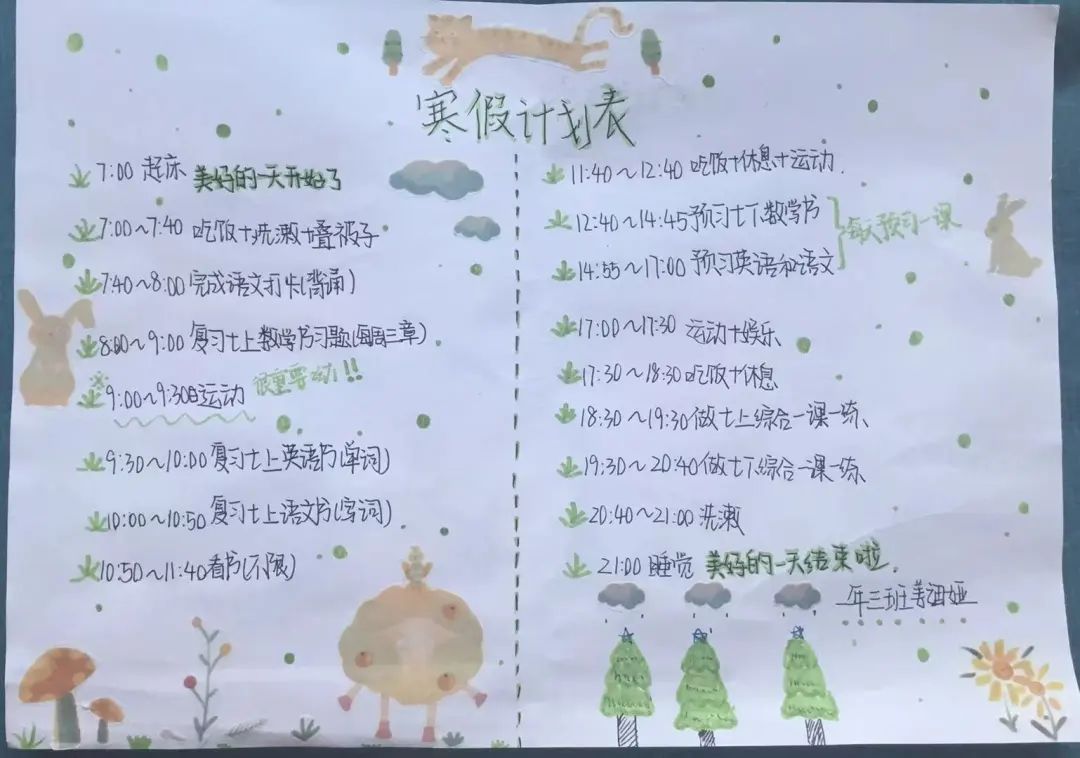 寒假计划表
7:00 起床 美好的一天开始了
7:00~7:40 吃饭+洗漱+叠被子
7:40~8:00 完成语文打卡(背诵)
8:00~9:00 复习七上数学书习题(每周三章)
9:00~9:30 运动 很重要哦!!
9:30~10:00 复习七上英语书(单词)
10:00~10:50 复习七上语文书(字词)
10:50~11:40 看书(不限)
11:40~12:40 吃饭+休息+运动
12:40~14:45 预习七下数学书
14:55~17:00 预习英语和语文
每天预习一课
17:00~17:30 运动+娱乐
17:30~18:30 吃饭+休息
18:30~19:30 做七上综合一课一练
19:30~20:40 做七下综合一课一练
20:40~21:00 洗漱
21:00 睡觉 美好的一天结束啦
一年三班 姜